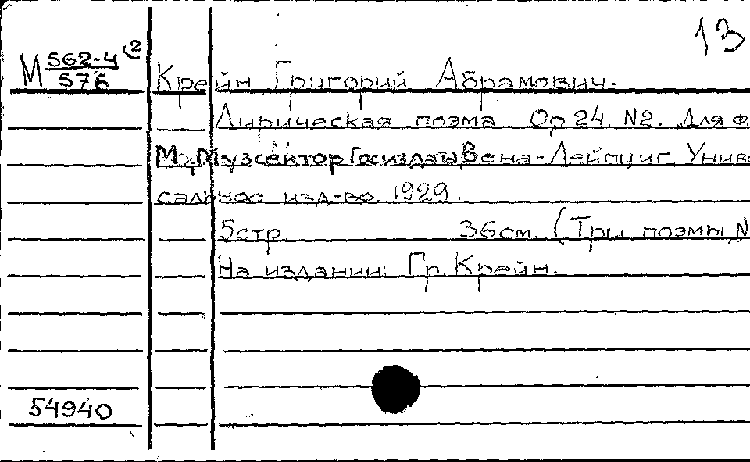 13
М 562-4 (2
576
Крейн Григорий Абрамович.
Лирическая поэма Ор 24. №2. Для ф
М, Музсектор Госиздата, Вена-Лейпциг, Унив
сальное изд-во. 1929.
5стр. 36см. (Три поэмы, N
На издании: Гр. Крейн.
54940